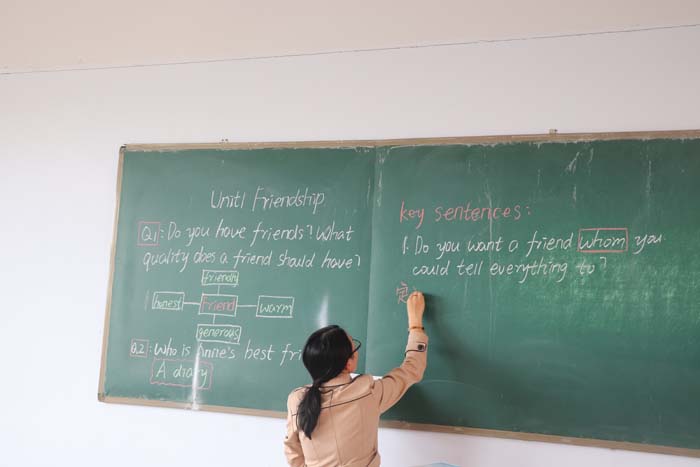 Unit1 Friendship
Q1: Do you have friends? What
quality does a friend should have?
friendly
honest
friend
warm
generous
Q.2: Who is Anne's best fri
A diary
key sentences:
1. Do you want a friend whom you
could tell everything to?
定